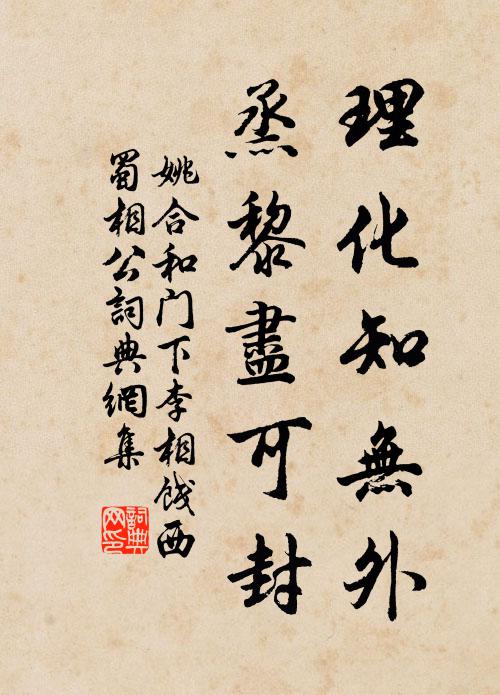 理化知無外
烝黎盡可封
姚合和门下李相餞西
蜀相公詞典網集
詞典
网印